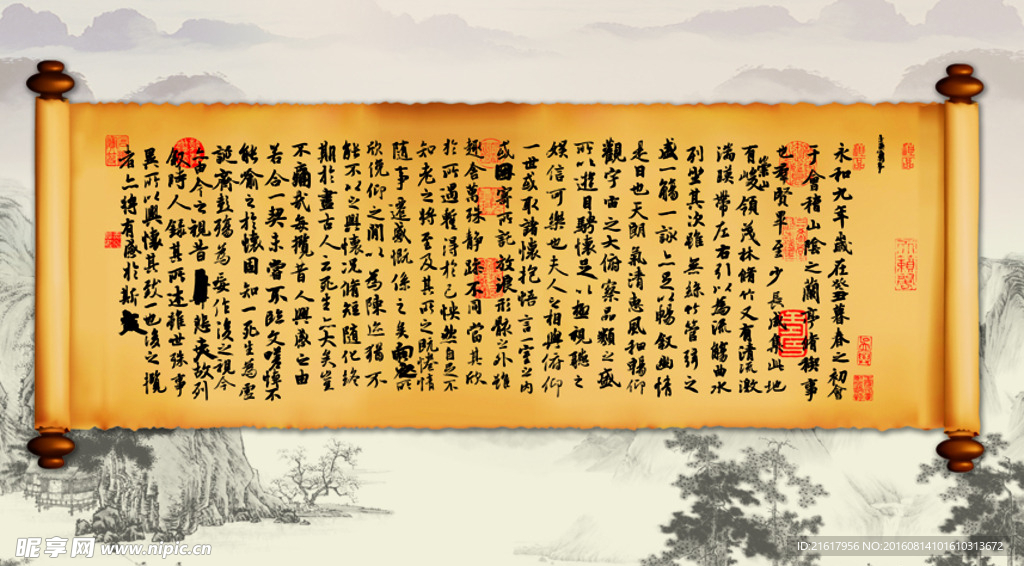 永和九年歲在癸丑暮春之初會
于會稽山陰之蘭亭脩稧事
也羣賢畢至少長咸集此地
有崇山峻領茂林脩竹又有清流激
湍暎帶左右引以為流觴曲水
列坐其次雖無絲竹管弦之
盛一觴一詠亦足以暢敘幽情
是日也天朗氣清惠風和暢仰
觀宇宙之大俯察品類之盛
所以遊目騁懷足以極視聽之
娛信可樂也夫人之相與俯仰
一世或取諸懷抱悟言一室之內
或因寄所託放浪形骸之外雖
趣舍萬殊靜躁不同當其欣
於所遇暫得於己怏然自足不
知老之將至及其所之既惓情
隨事遷感慨係之矣向之所
欣俛仰之間以為陳迹猶不
能不以之興懷況脩短隨化終
期於盡古人云死生亦大矣豈
不痛哉每攬昔人興感之由
若合一契未嘗不臨文嗟悼不
能喻之於懷固知一死生為虛
誕齊彭殤為妄作後之視今
亦由今之視昔悲夫故列
敘時人錄其所述雖世殊事
異所以興懷其致一也後之攬
者亦將有感於斯文
昵享网 www.nipic.cn
ID:21617956 NO:20160814101610313672